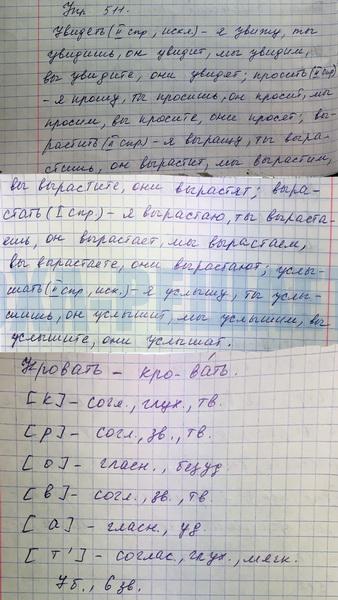 Упр 511.
Увидеть (II спр, искл) - я увижу, ты
увидишь, он увидит, мы увидим,
вы увидите, они увидят; просить (II спр)
- я прошу, ты просишь, он просит, мы
просим, вы просите, они просят; вы-
растить (II спр) - я выращу, ты выра-
стишь, он вырастит, мы вырастим,
вы вырастите, они вырастят; выра-
стать (I спр.) - я вырастаю, ты выраста-
ешь, он вырастает, мы вырастаем,
вы вырастаете, они вырастают; услы-
шать (II спр, иск.) - я услышу, ты услы-
шишь, он услышит, мы услышим, вы
услышите, они услышат.
Кровать - кро-ва́ть.
[к] - согл., глух., тв.
[р] - согл., зв., тв.
[о] - гласн., безуд
[в] - согл., зв., тв
[а] - гласн., уд
[т'] - соглас., глух., мягк.
7б., 6 зв.